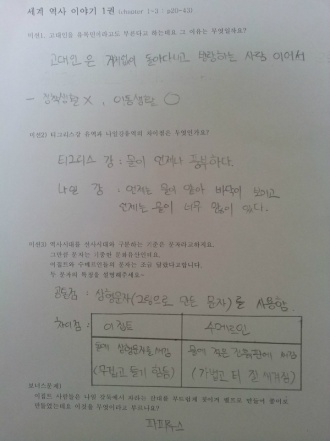 세계 역사 이야기 1권 (chapter 1~3 : p20~42)
미션1. 고대인을 유목민이라고도 부른다고 하는데요 그 이유는 무엇일까요?
고대인은 계속 돌아다니고 방랑하는 사람 이어서
- 정착생활 X, 이동생활 O
미션2) 티그리스강 유역과 나일강유역의 차이점은 무엇인가요?
티그리스 강 : 물이 언제나 풍부하다.
나일 강 : 언제는 물이 말아 바닥이 보이고
언제는 물이 너무 많이 있다.
미션3) 역사시대를 선사시대와 구분하는 기준은 문자라고하지요.
그만큼 문자는 귀중한 문화유산인데요.
이집트와 수메르인들의 문자는 조금 달랐다고합니다.
두 문자의 특징을 설명해주세요~
공통점 : 상형문자(그림으로 만든 문자)를 사용함
차이점 : 이집트 수메르인
돌에 상형문자를 새김 물에 젖은 진흙판에 새김
(무겁고 들기 힘듬) (가볍고 더 잘 새겨짐)
보너스문제)
이집트 사람들은 나일 강둑에서 자라는 갈대를 부드럽게 찧어서 펄프로 만들어 종이로
만들었는데요 이것을 무엇이라고 부르나요?
파피루스